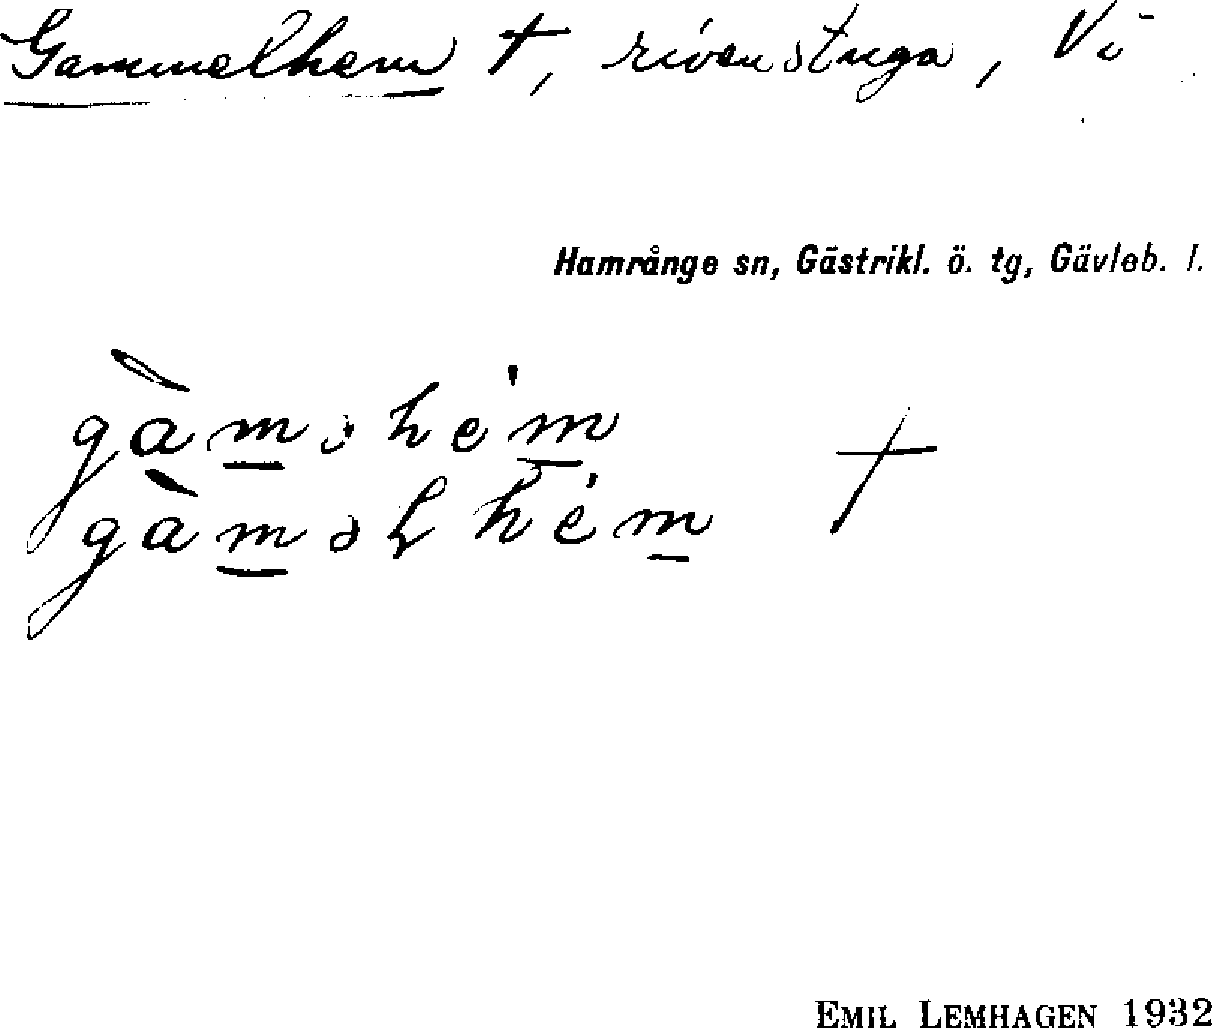 Gammelhem †, riven stuga, Vi
Hamrånge sn, Gästrikl. ö. tg, Gävleb. l.
gàməhém †
gàməɫhém
EMIL LEMHAGEN 1932